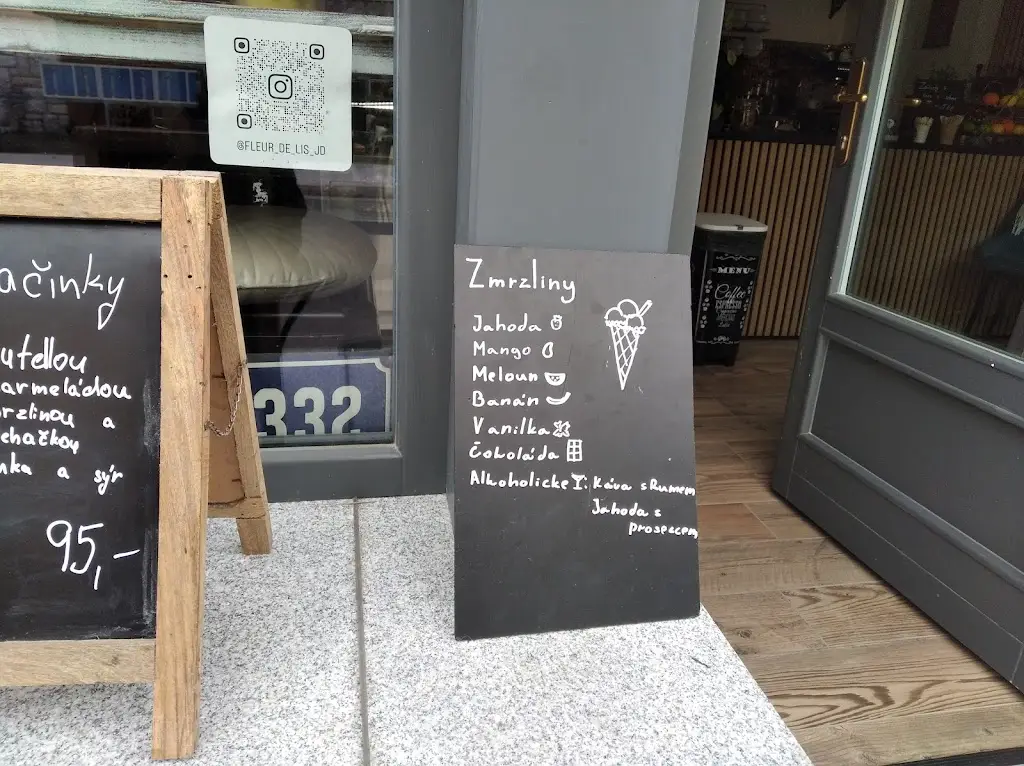 @FLEUR_DE_LIS_JD
ačinky
utellou
armeládou
rzlinou a
lehačkou
nka a sýr
95,-
332
Zmrzliny
Jahoda
Mango
Meloun
Banán
Vanilka
Čokoláda
Alkoholické: Káva s Rumem
Jahoda s
proseccem
MENU
Coffee
ESPRESSO